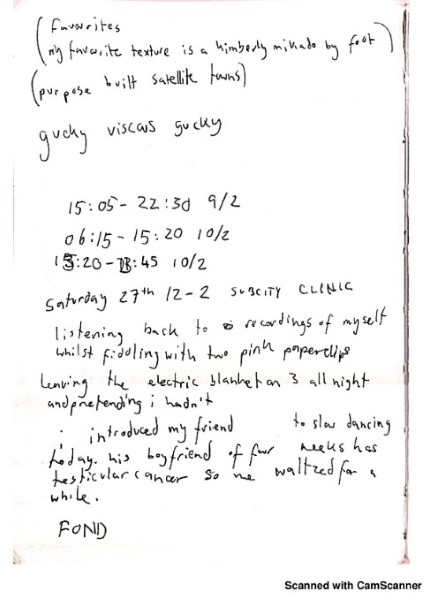 (Favourites
my favourite texture is a kimberly mikado by foot)
(purpose built satellite towns)
gucky viscous gucky
15:05 - 22:30 9/2
06:15 - 15:20 10/2
15:20 - :45 10/2
Saturday 27th 12-2 SUBCITY CLINIC
listening back to recordings of myself
whilst fiddling with two pink paperclips
leaving the electric blanket on 3 all night
and pretending i hadn't
i introduced my friend to slow dancing
today. his boyfriend of four weeks has
testicular cancer so we waltzed for a
while.
FOND
Scanned with CamScanner